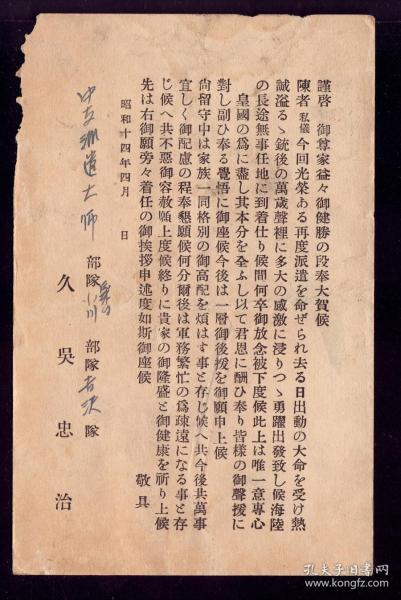 謹啓 御尊家益々御健勝の段奉大賀候
陳者私儀今回光榮ある再度派遣を命ぜられ去る日出動の大命を受け熱
誠溢るゝ銃後の萬歳聲裡に多大の感激に浸りつゝ勇躍出發致し候海陸
の長途無事任地に到着仕り候間何卒御放念被下度候此上は唯一意專心
皇國の爲に盡し其本分を全ふし以て君恩に酬ひ奉り皆樣の御聲援に
對し副ひ奉る覺悟に御座候今後は一層御後援を御願申上候
尚留守中は家族一同格別の御高配を煩はす事と存じ候へ共今後共萬事
宜しく御配慮の程奉懇願候何分爾後は軍務繁忙の爲疎遠になる事と存
じ候へ共不惡御容赦願上度候終りに貴家の御隆盛と御健康を祈り上候
先は右御願旁々着任の御挨拶申述度如斯御座候
敬具
昭和十四年四月 日
中支派遣 部隊 部隊 隊
久吳忠治
孔夫子旧书网
www.kongfz.com